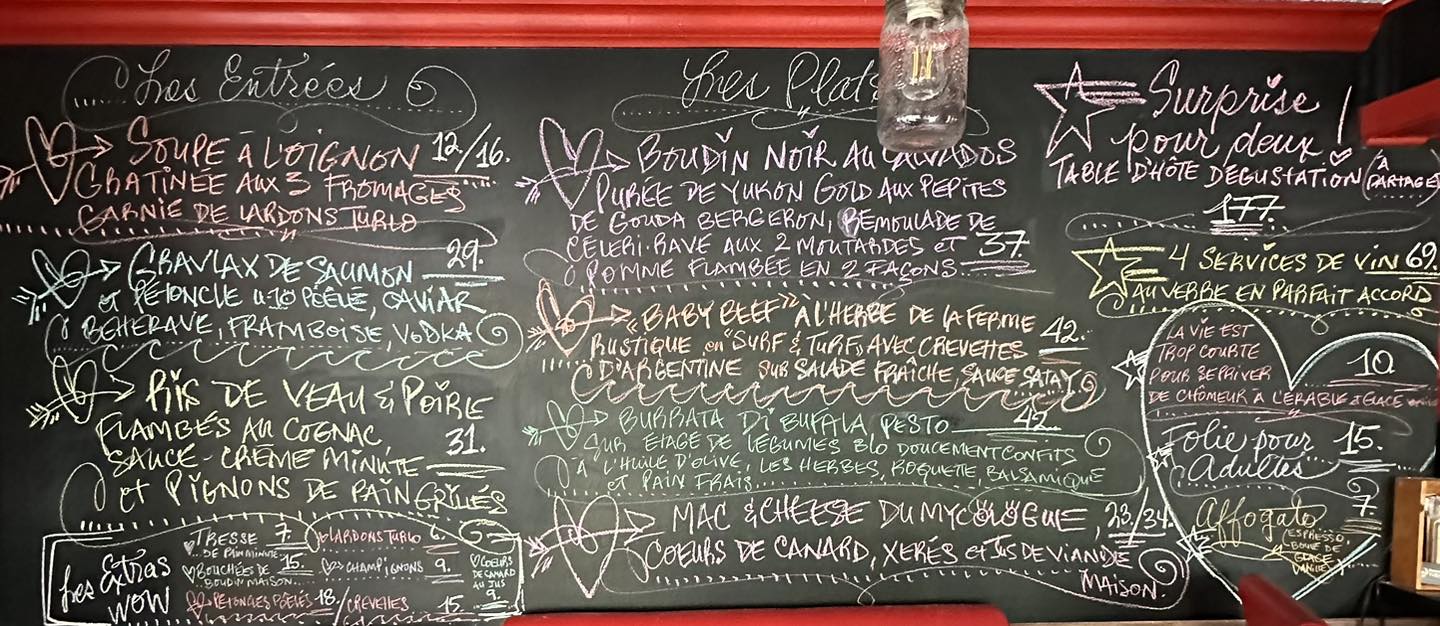 Les Entrées
SOUPE À L'OIGNON 12./16.
GRATINÉE AUX 3 FROMAGES
GARNIE DE LARDONS TURLO
GRAVLAX DE SAUMON 29.
et PÉTONCLE U-10 POÊLÉ, CAVIAR
BETTERAVE, FRAMBOISE, VODKA
RIS DE VEAU & POIRE
FLAMBÉS AU COGNAC
SAUCE-CRÈME MINUTE 31.
et PIGNONS DE PAIN GRILLÉS
Les Extras WOW
TRESSE 7.
DE PAIN MINUTE
BOUCHÉES DE 15.
BOUDIN MAISON
PÉTONCLES POÊLÉS 18./CREVETTES 15.
LARDONS TURLO 6.
CHAMPIGNONS 9.
COEURS
DE CANARD
AU JUS
9.
Les Plats
BOUDIN NOIR AU CALVADOS
PURÉE DE YUKON GOLD AUX PÉPITES
DE GOUDA BERGERON, RÉMOULADE DE
CÉLERI-RAVE AUX 2 MOUTARDES et 37.
POMME FLAMBÉE EN 2 FAÇONS
"BABY BEEF" À L'HERBE DE LA FERME
RUSTIQUE en "SURF & TURF" AVEC CREVETTES 42.
D'ARGENTINE SUR SALADE FRAÎCHE, SAUCE SATAY
BURRATA DI BUFALA PESTO 42.
SUR ÉTAGE DE LÉGUMES BIO DOUCEMENT CONFITS
À L'HUILE D'OLIVE, LES HERBES, ROQUETTE, BALSAMIQUE
et PAIN FRAIS
MAC & CHEESE DU MYCOLOGUE, 23./34.
COEURS DE CANARD, XÉRÈS et JUS DE VIANDE
MAISON.
Surprise
pour deux!
TABLE D'HÔTE DÉGUSTATION (À PARTAGER)
177.
4 SERVICES DE VIN 69.
AU VERRE EN PARFAIT ACCORD
LA VIE EST
TROP COURTE
POUR SE PRIVER 10
DE CHÔMEUR À L'ÉRABLE & GLACE
Folie pour 15.
Adultes
Affogato 7
(ESPRESSO,
BOULE DE
GLACE
VANILLE)